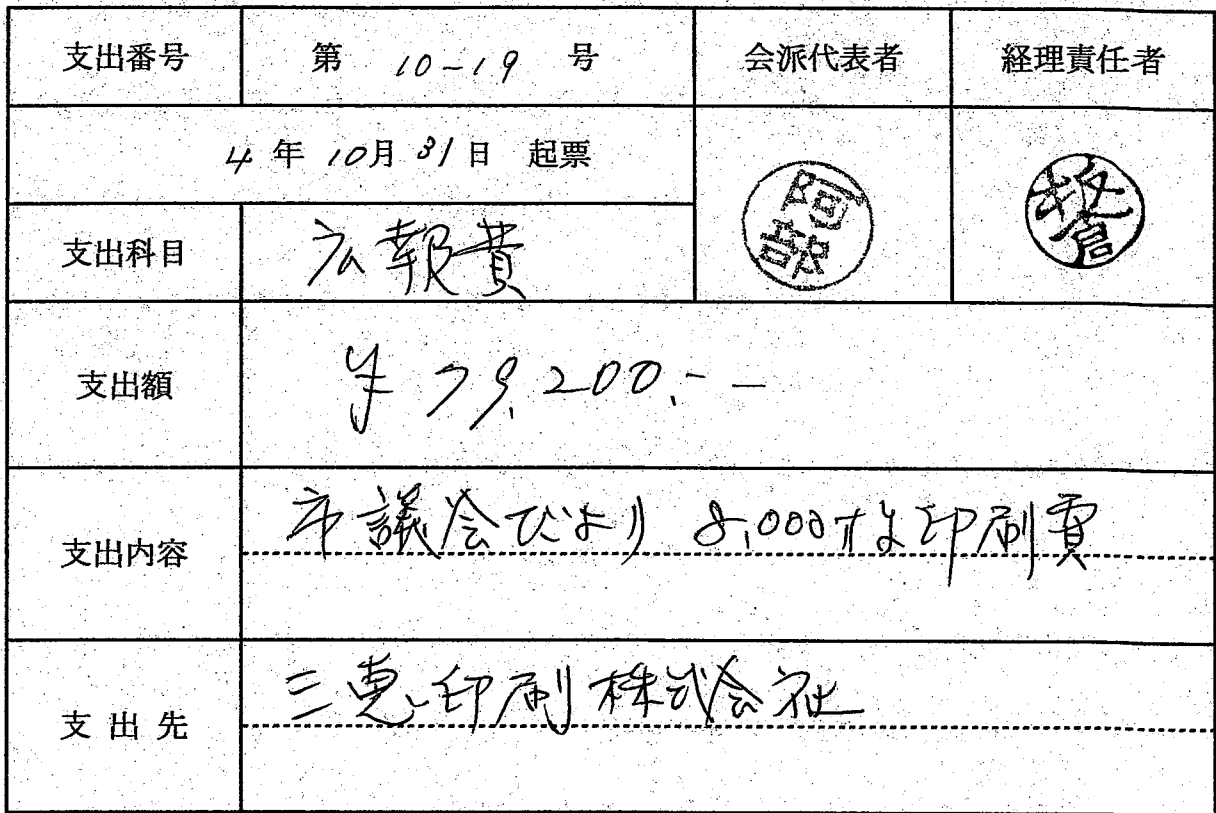 支出番号 第 10-19 号 会派代表者 経理責任者
4 年 10月 31日 起票
阿部
板倉
支出科目 広報費
支出額 ¥79,200.--
支出内容 市議会だより 8,000枚印刷費
支出先 三恵印刷株式会社